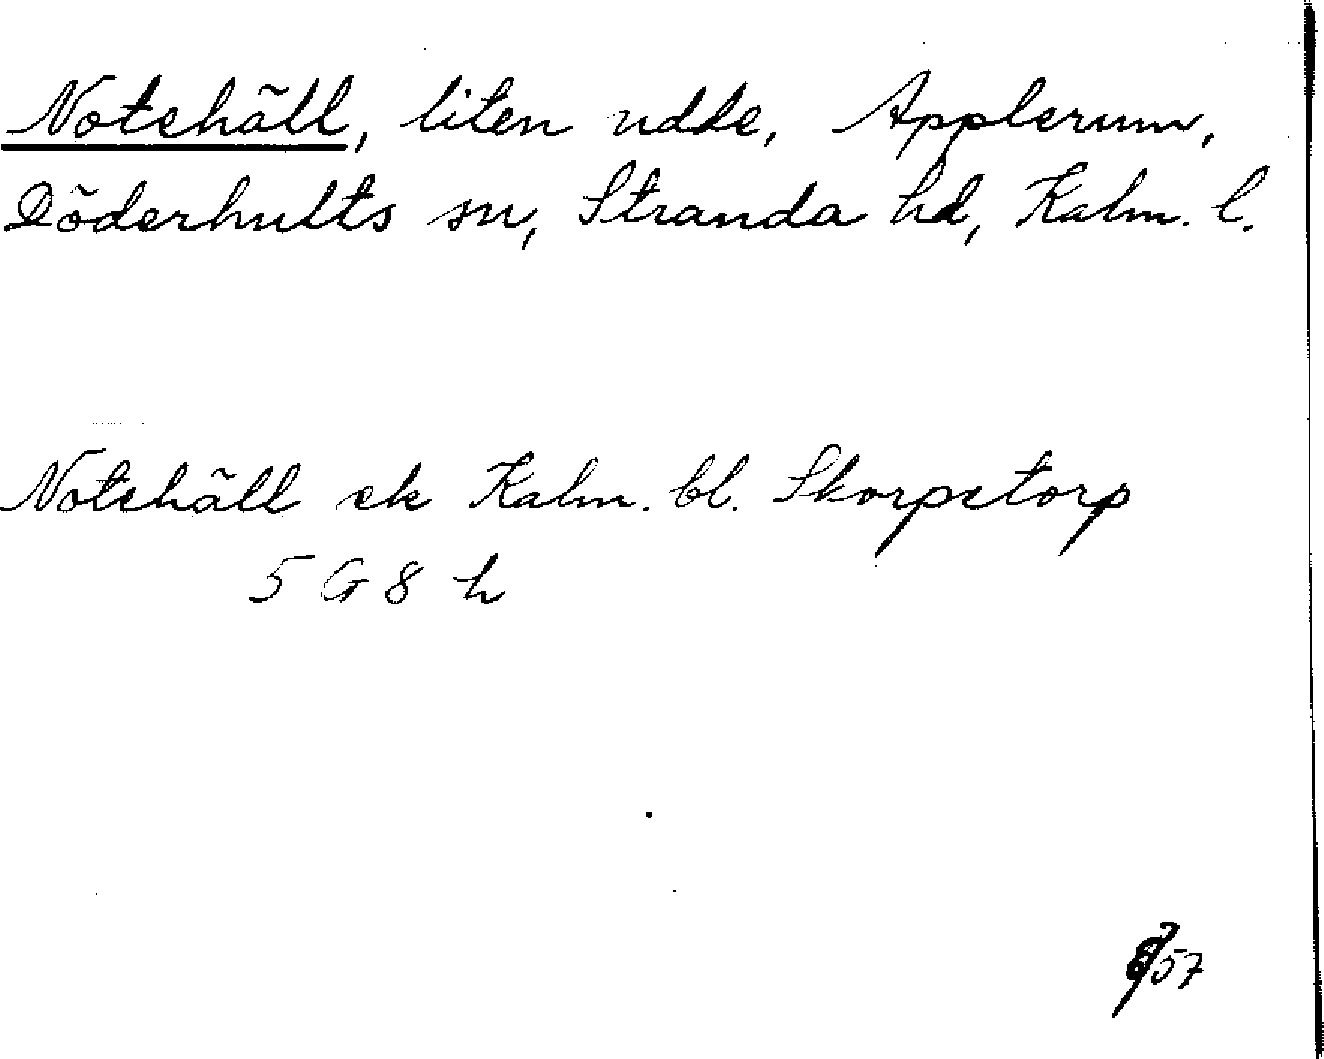 Notehäll, liten udde, Applerum,
Döderhults sn, Stranda hd, Kalm. l.
Notehäll ek Kalm. bl. Skorpetorp
5 G 8 h
57